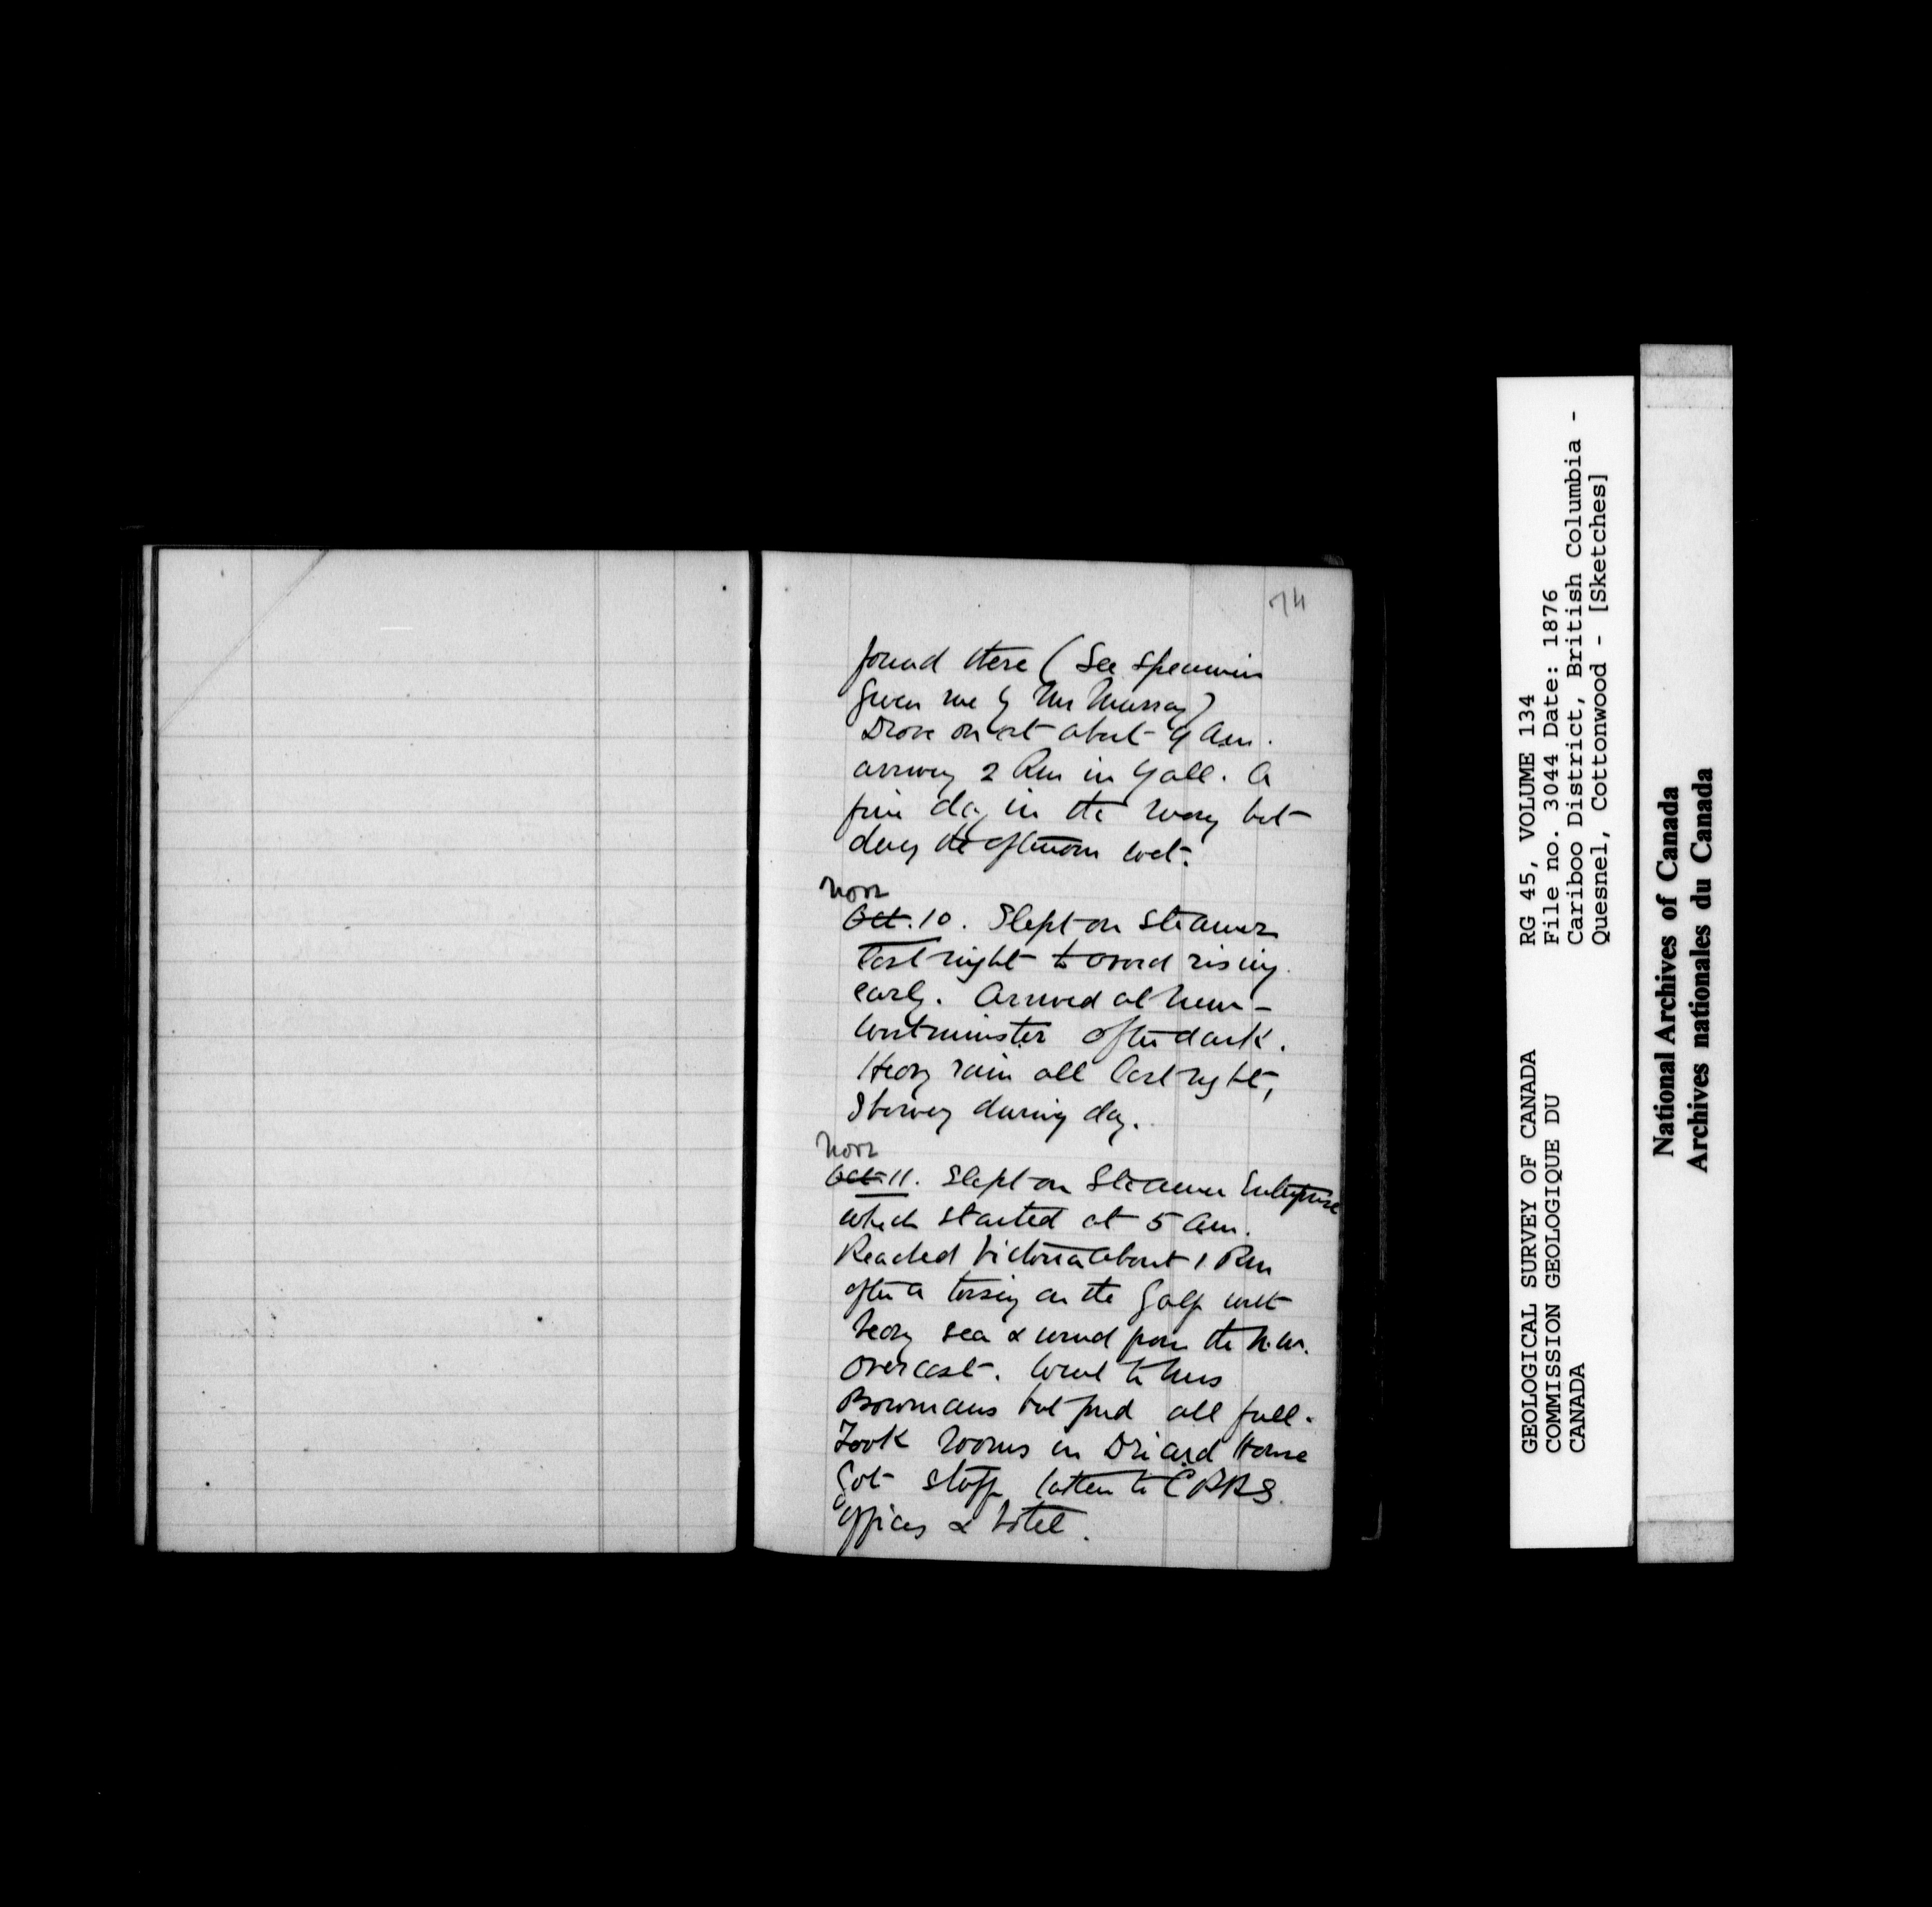 74
found there (See specimen
given me by Mr Murray)
Drove on at about 9 Am.
arriving 2 Pm in Yale. A
fine day in the way but
during the afternoon wet.
Novr
Oct. 10. Slept on steamer
last night to avoid rising
early. Arrived at New-
westminster after dark.
Heavy rain all last night,
Showery during day.
Novr
Oct. 11. Slept on Steamer Enterprise
which started at 5 am.
Reached Victoria about 1 Pm
after a tossing on the Gulf with
heavy sea & wind from the N.W.
overcast. Went to Mrs
Bowmans but found all full.
Took rooms in Driard House
Got stuff taken to C P R S.
offices & hotel.
GEOLOGICAL SURVEY OF CANADA
COMMISSION GEOLOGIQUE DU
CANADA
RG 45, VOLUME 134
File no. 3044 Date: 1876
Cariboo District, British Columbia -
Quesnel, Cottonwood - [Sketches]
National Archives of Canada
Archives nationales du Canada